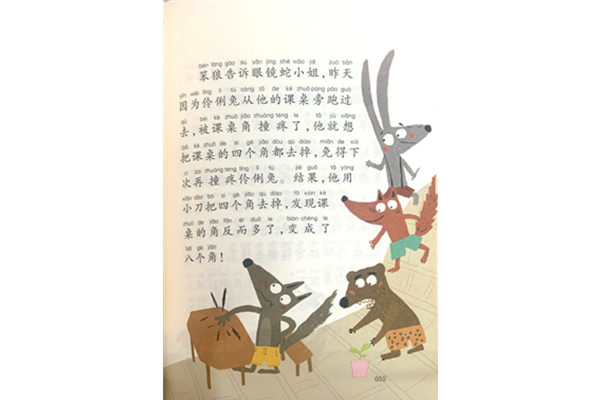 bèn láng gào su yǎn jìng shé xiǎo jiě zuó tiān
笨狼告诉眼镜蛇小姐，昨天
yīn wèi líng lì tù cóng tā de kè zhuō páng pǎo guò
因为伶俐兔从他的课桌旁跑过
qù bèi kè zhuō jiǎo zhuàng téng le tā jiù xiǎng
去，被课桌角撞疼了，他就想
bǎ kè zhuō de sì gè jiǎo dōu qù diào miǎn de xià
把课桌的四个角都去掉，免得下
cì zài zhuàng téng líng lì tù jié guǒ tā yòng
次再撞疼伶俐兔。结果，他用
xiǎo dāo bǎ sì gè jiǎo qù diào fā xiàn kè
小刀把四个角去掉，发现课
zhuō de jiǎo fǎn ér duō le biàn chéng le
桌的角反而多了，变成了
bā gè jiǎo
八个角！
055